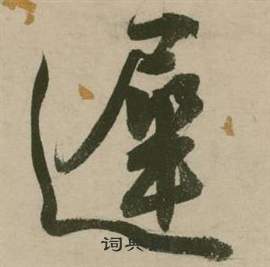 遲
词典